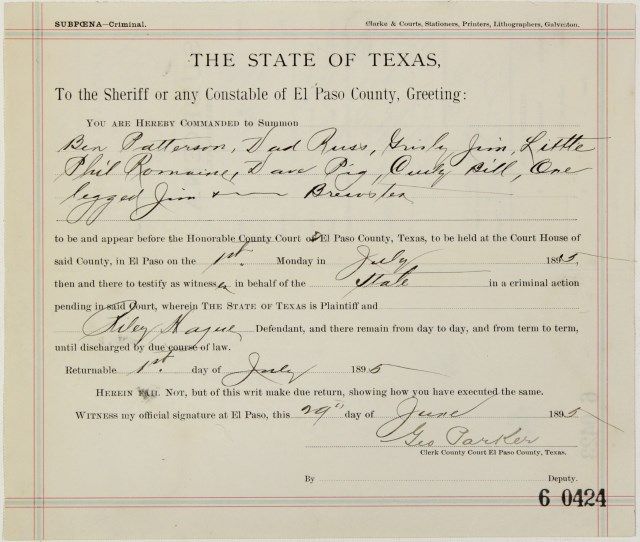 SUBPŒNA—Criminal.
Clarke & Courts, Stationers, Printers, Lithographers, Galveston.
THE STATE OF TEXAS,
To the Sheriff or any Constable of El Paso County, Greeting:
YOU ARE HEREBY COMMANDED to Summon
Ben Patterson, Dad Russ, Grisly Jim, Little
Phil Romaine, Dave Pig, Curly Bill, One
legged Jim & — Brewster
to be and appear before the Honorable County Court of El Paso County, Texas, to be held at the Court House of
said County, in El Paso on the 1st. Monday in July 1895,
then and there to testify as witness in behalf of the State in a criminal action
pending in said Court, wherein THE STATE OF TEXAS is Plaintiff and
Riley Hague Defendant, and there remain from day to day, and from term to term,
until discharged by due course of law.
Returnable 1st. day of July 1895
HEREIN FAIL NOT, but of this writ make due return, showing how you have executed the same.
WITNESS my official signature at El Paso, this 29" day of June 1895
Geo Parker
Clerk County Court El Paso County, Texas.
By Deputy.
6 0424